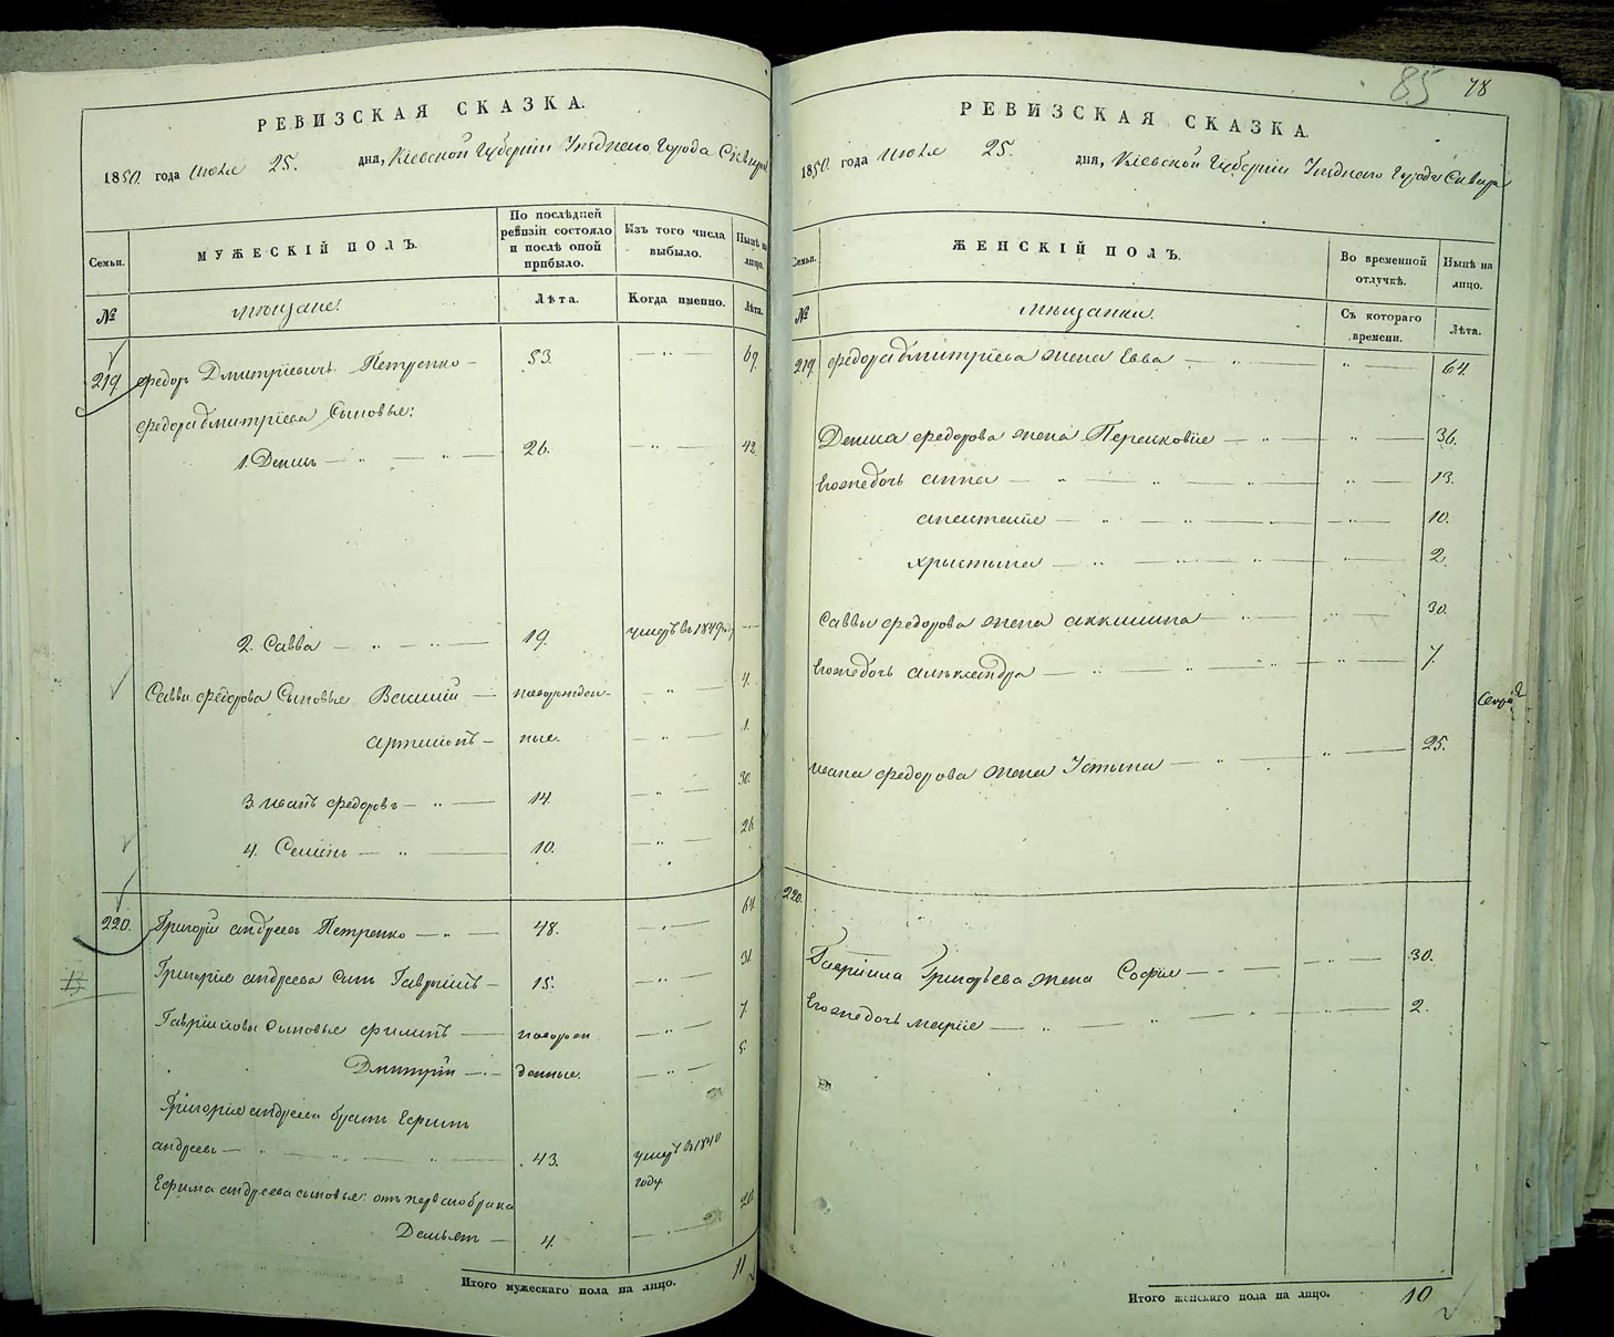 РЕВИЗСКАЯ СКАЗКА.
1850. года Июля 25. дня, Кіевской Губерніи Уѣзднаго Города Сквиры
Семьи.
МУЖЕСКІЙ ПОЛЪ.
По послѣдней ревизіи состояло и послѣ оной прибыло.
Изъ того числа выбыло.
Нынѣ на лицо.
№
мѣщане:
Лѣта.
Когда именно.
Лѣта.
219 Федоръ Дмитріевичъ Петренко — 53. — " — 69.
Федора Дмитріева Сыновья:
1. Денисъ — " — " — 26. — " — 42.
2. Савва — " — " — 19. умеръ въ 1849 году —
Саввы Федорова Сыновья Василій — новорожден- — " — 4.
Артемонъ — ные. — " — 1.
3. Иванъ Федоровъ — " — 14. — " — 30.
4. Семенъ — " — 10. — " — 26.
220. Григорій Андреевъ Петренко — " — 48. — " — 64.
Григорія Андреева Сынъ Гавріилъ — 15. — " — 31.
Гавріиловы Сыновья Филипъ — новорож — " — 7.
Дмитрій — денные. — " — 5.
Григорія Андреева братъ Ефимъ
Андреевъ — " — " — " — 43. умеръ въ 1840
году
Ефима Андреева сыновья: отъ перваго брака
Демьянъ — 4. — " — 20.
Итого мужескаго пола на лицо. 11
85 78
РЕВИЗСКАЯ СКАЗКА.
1850. года Июля 25. дня, Кіевской Губерніи Уѣзднаго Города Сквиры
Семьи.
ЖЕНСКІЙ ПОЛЪ.
Во временной отлучкѣ.
Нынѣ на лицо.
№
мѣщанки.
Съ котораго времени.
Лѣта.
219 Федора Дмитріева жена Евва — " — " — 64.
Дениса Федорова жена Перасковія — " — " — 36.
Его же дочь Анна — " — " — " — 13.
Анастасія — " — " — " — 10.
Христина — " — " — " — 2.
Саввы Федорова жена Аккилина — " — " — 30.
Его же дочь Александра — " — " — " — 7.
Ивана Федорова жена Устина — " — " — 25.
220.
Гавріила Григорьева жена Софія — " — " — 30.
Его же дочь Марія — " — " — " — 2.
Итого женскаго пола на лицо. 10